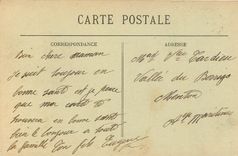 CARTE POSTALE
CORRESPONDANCE
ADRESSE
Bien chère maman
Je suis toujour en
bonne santé et je pense
que ma carte te
trouvera en bonne santé
bien le bonjour a toute
la famille Ton fils Eugène
Mad Vve Tardieu
Vallée du Borrigo
Menton
Alp Maritime